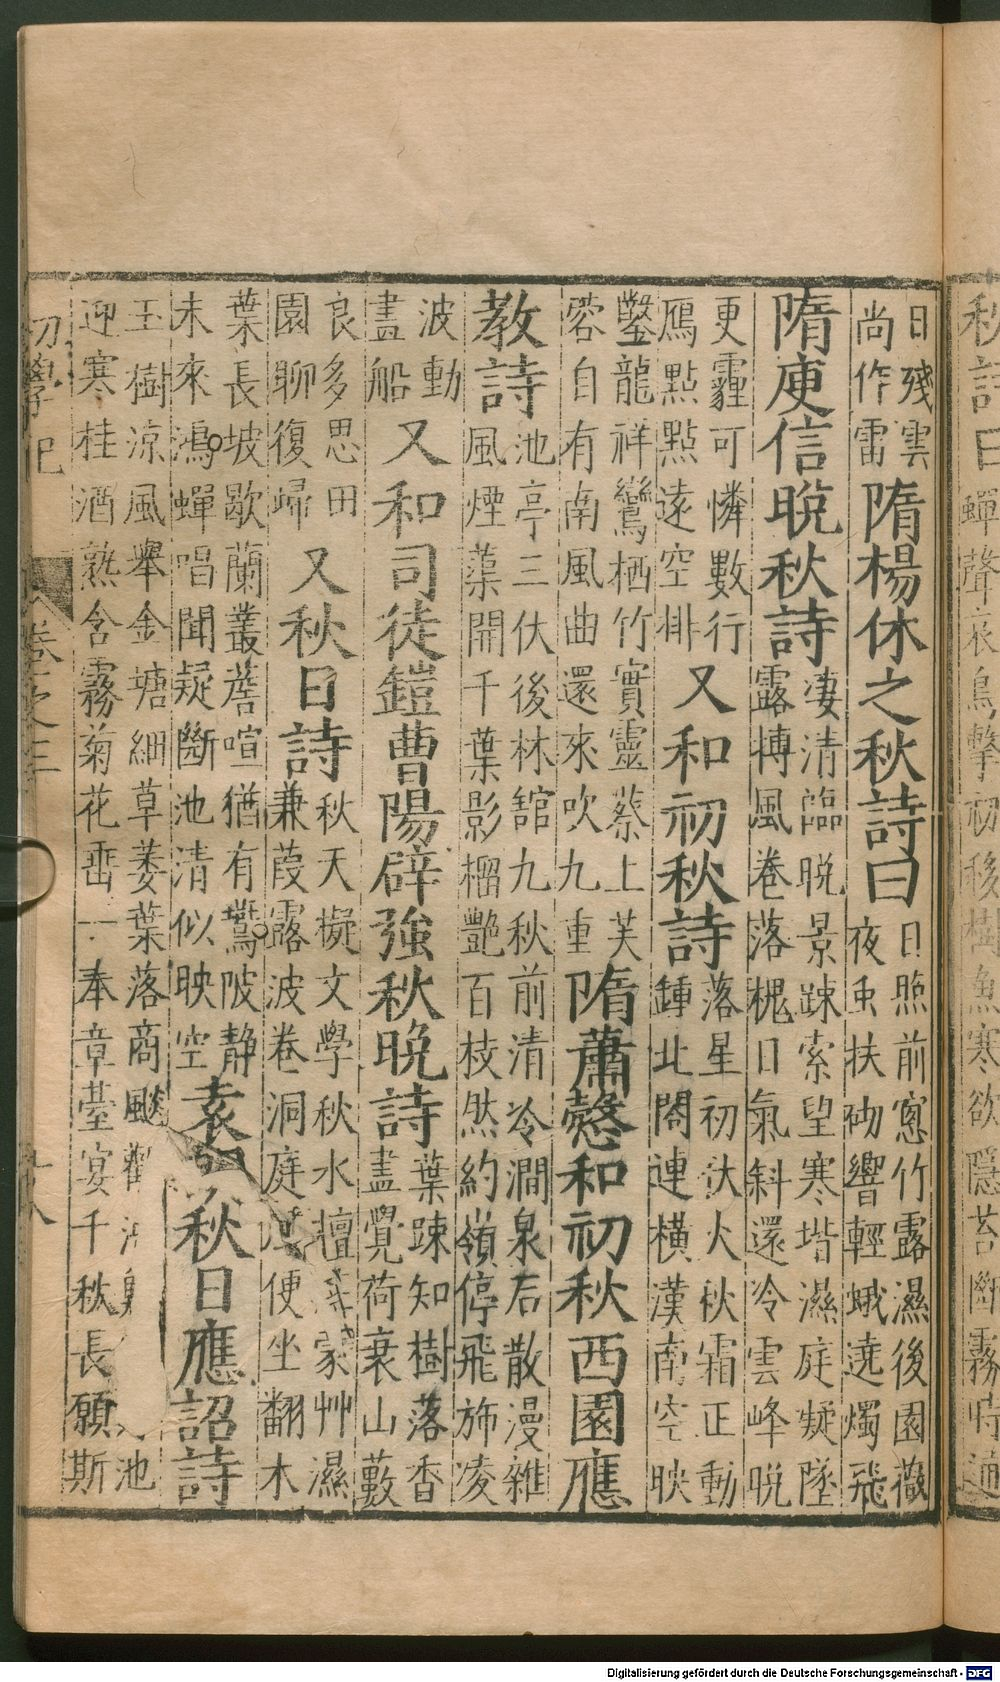 秋詩曰
初移樹魚寒欲隱苔斷霧時通
日殘雲
尚作雷
隋楊休之秋詩曰
日照前窻竹露濕後園薇
夜蛩扶砌響輕蛾遶燭飛
隋庾信晩秋詩
凄清臨晩景踈索望寒堦濕庭凝墜
露摶風卷落槐日氣斜還冷雲峰晩
更霾可憐數行
鴈點點遠空排
又和初秋詩
落星初伏火秋霜正動
鍾北閣連橫漢南空映
鑿龍祥鸞栖竹實靈蔡上芙
蓉自有南風曲還來吹九重
隋蕭愨和初秋西園應
教詩
池亭三伏後林舘九秋前清泠澗泉后散漫雜
風煙蕖開千葉影榴艷百枝然約嶺停飛斾凌
波動
畫船
又和司徒鎧曹陽辟強秋晚詩
葉踈知樹落香
盡覺荷衰山藪
良多思田
園聊復歸
又秋日詩
秋天擬文學秋水擅蒙艸濕
兼葭露波卷洞庭便坐翻木
葉長坡歇蘭叢蓎喧猶有鷰陂静
未來鴻蟬唱聞疑斷池清似映空
袁秋日應詔詩
玉樹涼風舉金塘細草萎葉落商飈觀池
迎寒桂酒熟含霧菊花垂一奉章臺宴千秋長願斯
初學記 卷之三 十八
Digitalisierung gefördert durch die Deutsche Forschungsgemeinschaft - DFG